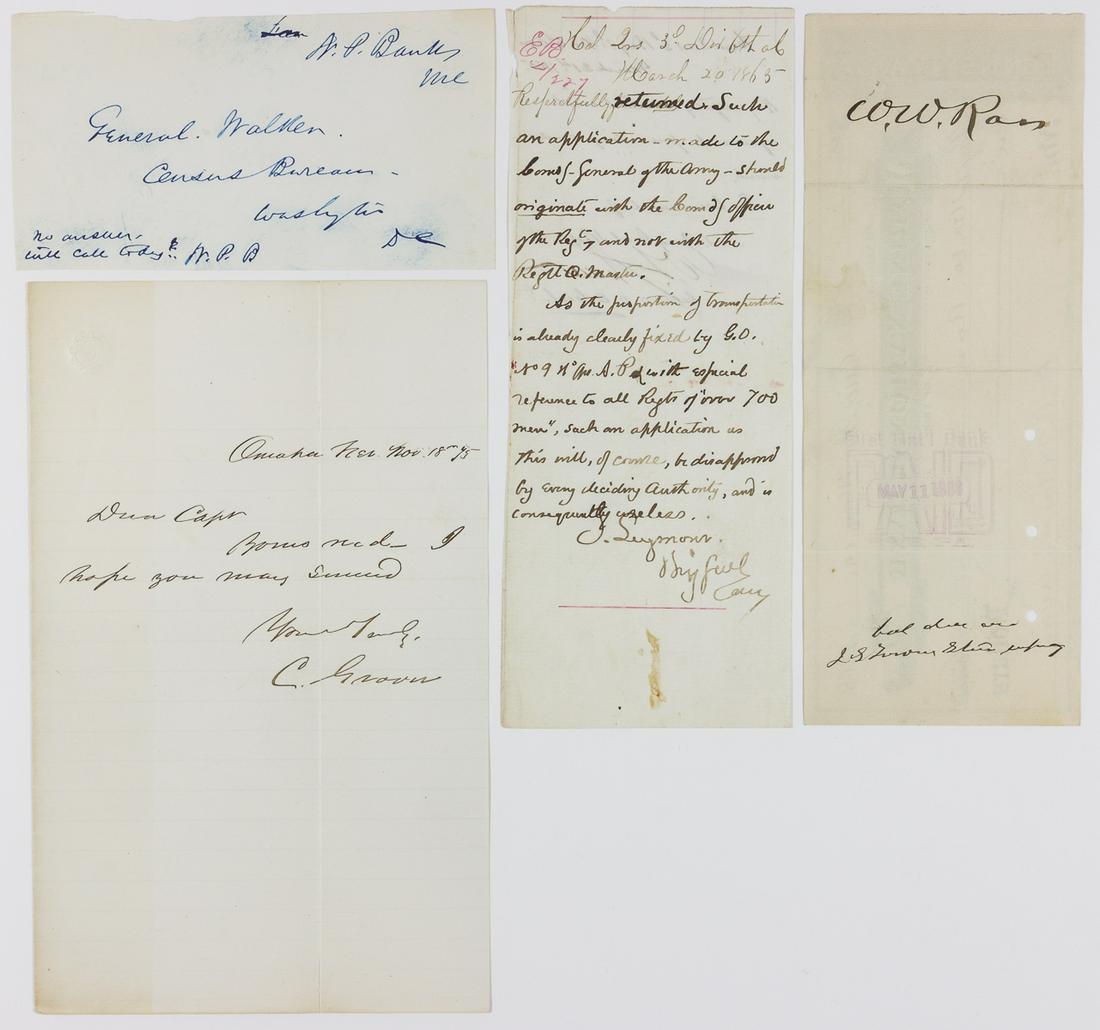 N. P. Banks
MC
General. Walker.
Census Bureau -
Washgtn
DC
no answer.
will call today. N. P. B
Omaha Neb. Nov. 18th 75
Dear Capt
Yours recd - I
hope you may succeed
Yours Truly.
C. Grover
E.B.
227
Hd Qrs 3d Div 6th A C
March 20 1865
Respectfully returned. Such
an application - made to the
Comdg-General of the Army - should
originate with the Comdg officer
of the Regt, and not with the
Regtl Q. Master.
As the proportion of transportation
is already clearly fixed by G.O.
No 9 Hd Qrs. A. P. with especial
reference to all Regts of "over 700
men", such an application as
this will, of course, be disapproved
by every deciding Authority, and is
consequently useless.
T. Seymour.
Brig Genl
Comg
W. W. Ross